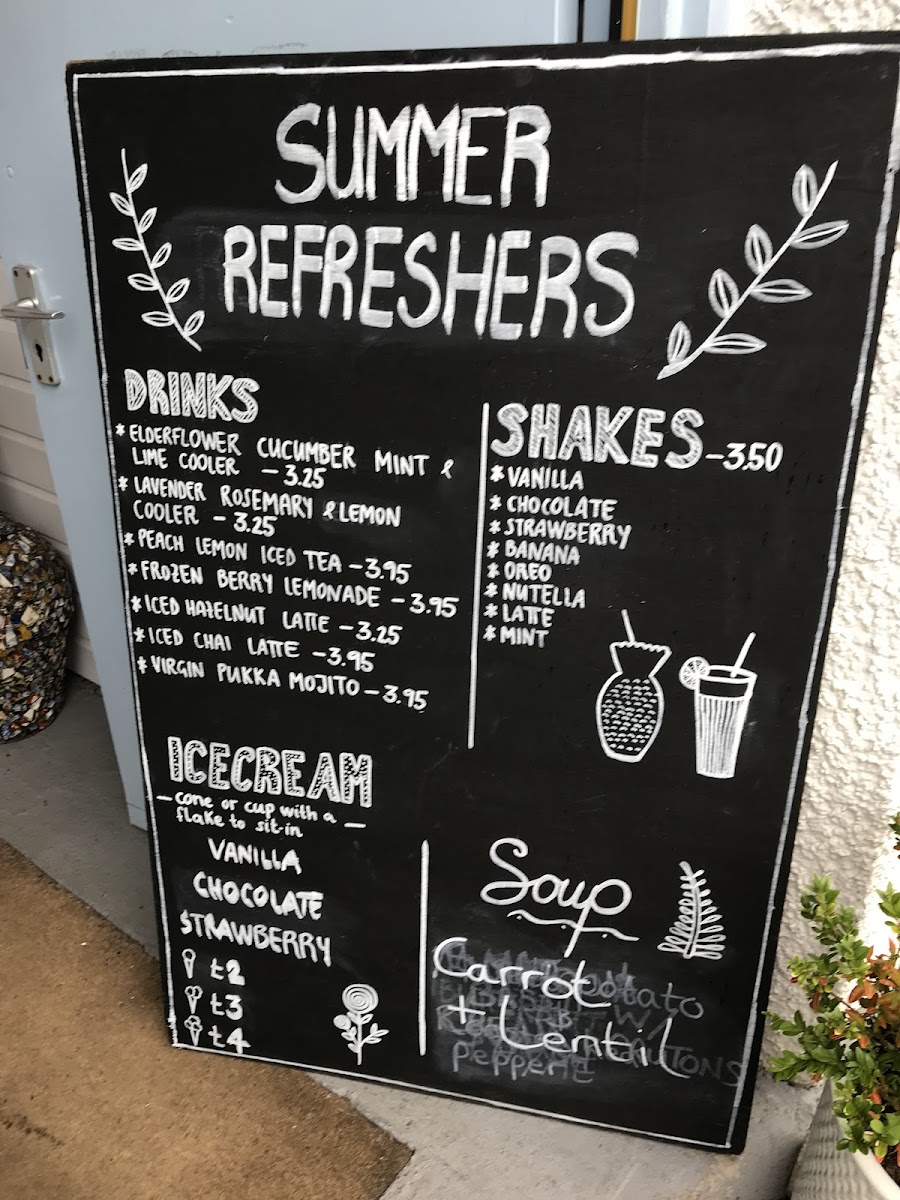 SUMMER
REFRESHERS
DRINKS
* ELDERFLOWER CUCUMBER MINT &
LIME COOLER - 3.25
* LAVENDER ROSEMARY & LEMON
COOLER - 3.25
* PEACH LEMON ICED TEA - 3.95
* FROZEN BERRY LEMONADE - 3.95
* ICED HAZELNUT LATTE - 3.25
* ICED CHAI LATTE - 3.95
* VIRGIN PUKKA MOJITO - 3.95
SHAKES - 3.50
* VANILLA
* CHOCOLATE
* STRAWBERRY
* BANANA
* OREO
* NUTELLA
* LATTE
* MINT
ICECREAM
- cone or cup with a
flake to sit-in -
VANILLA
CHOCOLATE
STRAWBERRY
£2
£3
£4
Soup
Carrot
+ Lentil